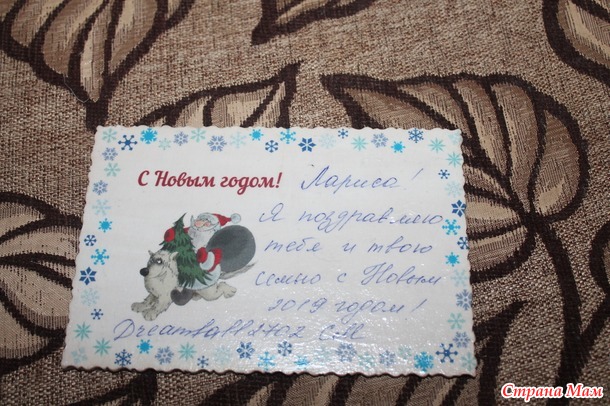 С Новым годом!
Лариса!
Я поздравляю
тебя и твою
семью с Новым
2019 годом!
СМ
Страна Мам